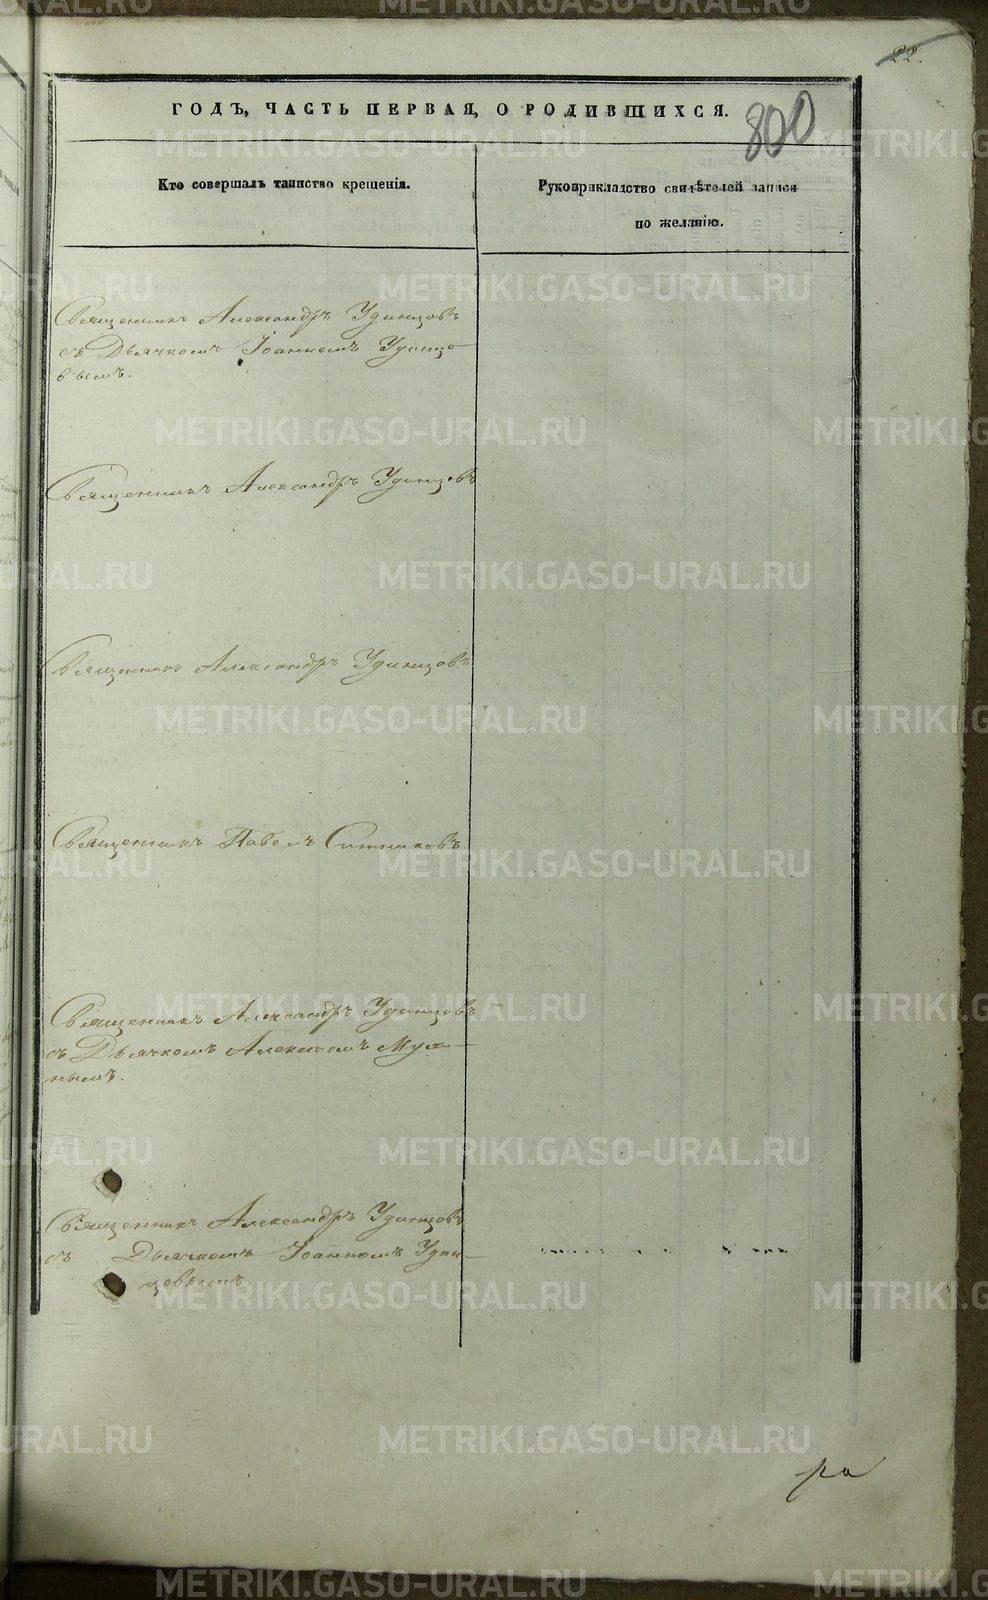 22.
ГОДЪ, ЧАСТЬ ПЕРВАЯ, О РОДИВШИХСЯ.
800
Кто совершалъ таинство крещенія.
Рукоприкладство свидѣтелей записи
по желанію.
Священникъ Александръ Удинцовъ
съ Дьячкомъ Іоанномъ Удинцо-
вымъ.
Священникъ Александръ Удинцовъ
Священникъ Александръ Удинцовъ
Священникъ Павелъ Ситниковъ.
Священникъ Александръ Удинцовъ
съ Дьячкомъ Алексѣемъ
Священникъ Александръ Удинцовъ
съ Дьячкомъ Іоанномъ Удин-
цовымъ.
METRIKI.GASO-URAL.RU